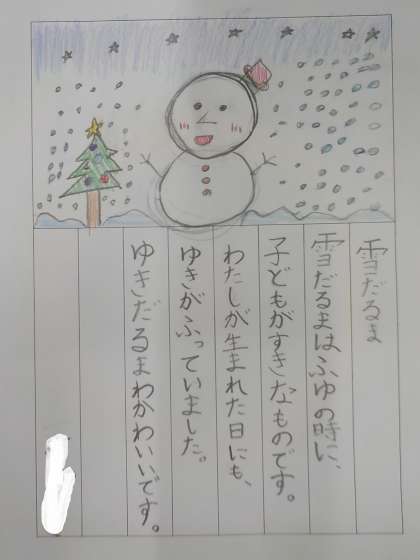 雪だるま
雪だるまはふゆの時に、
子どもがすきなものです。
わたしが生まれた日にも、
ゆきがふっていました。
ゆきだるまわかわいいです。